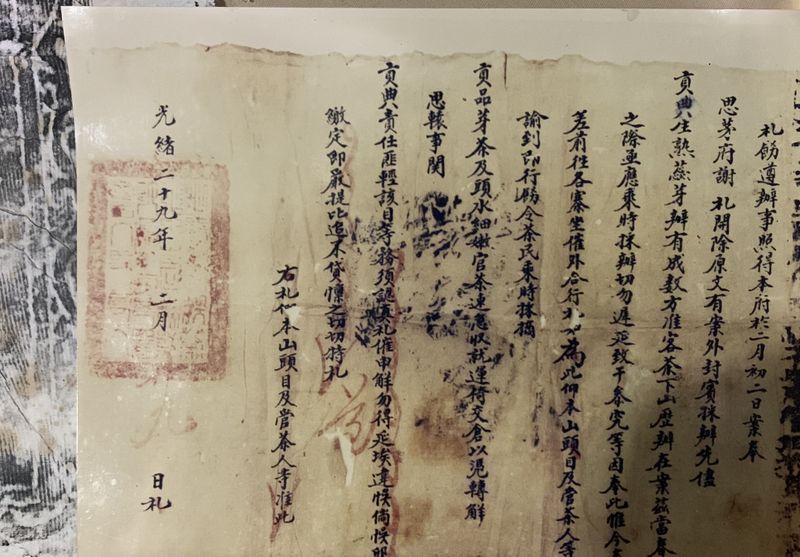 札飭遵辦事照得本府於二月初二日案奉
思茅府謝 札開除原文有案外封賓採辦先儘
貢典生熟蕊芽辦有成数方准客茶下山歷辦在案茲當春
之際亟應乘時採辦切勿遲延致干參究等因奉此惟今
差前往各寨坐催外合行札 為此仰本山頭目及管茶人等
諭到即行傳令茶民乘時採摘
貢品芽茶及頭水細嫩官茶速急收就運椅交倉以凴轉解
思轅事関
貢典責任匪輕該目等務須認真札催申解勿得延埃違悮倘悮
繳定即嚴提比追不貸懍之切切特札
右札仰本山頭目及管茶人等准此
光緒二十九年 二月 日札